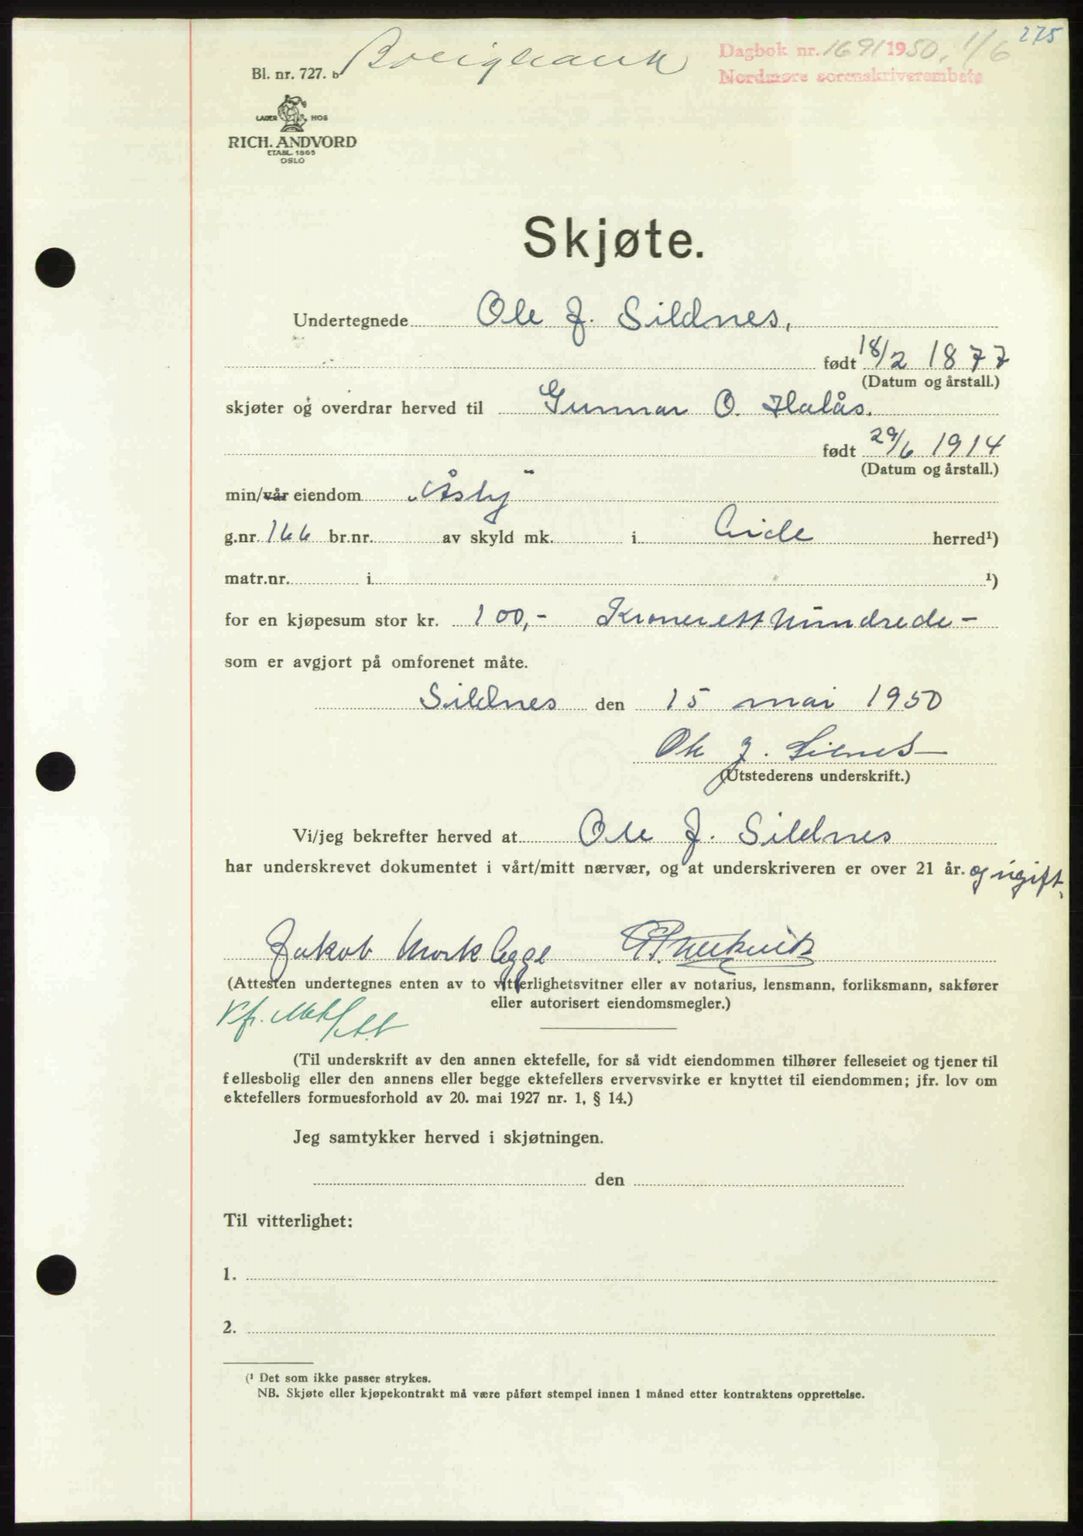 275
Dagbok nr. 1691 1950, 1/6
Nordmøre sorenskriverembete
Bl. nr. 727. b
LAGER HOS
RICH. ANDVORD
ETABL. 1865
OSLO
Skjøte.
Undertegnede Ole J. Sildnes,
født 18/2 1877
(Datum og årstall.)
skjøter og overdrar herved til Gunnar O. Halås.
født 29/6 1914
(Datum og årstall.)
min/vår eiendom „Åsly"
g.nr. 166 br.nr. av skyld mk. i Eide herred¹)
matr.nr. i ¹)
for en kjøpesum stor kr. 100,- Kroner ett hundrede -
som er avgjort på omforenet måte.
Sildnes den 15 mai 1950
Ole J. Silnes
(Utstederens underskrift.)
Vi/jeg bekrefter herved at Ole J. Sildnes
har underskrevet dokumentet i vårt/mitt nærvær, og at underskriveren er over 21 år. og ugift.
Jakob Mork Egge
(Attesten undertegnes enten av to vitterlighetsvitner eller av notarius, lensmann, forliksmann, sakfører
eller autorisert eiendomsmegler.)
(Til underskrift av den annen ektefelle, for så vidt eiendommen tilhører felleseiet og tjener til
fellesbolig eller den annens eller begge ektefellers ervervsvirke er knyttet til eiendommen; jfr. lov om
ektefellers formuesforhold av 20. mai 1927 nr. 1, § 14.)
Jeg samtykker herved i skjøtningen.
den
Til vitterlighet:
1.
2.
(¹ Det som ikke passer strykes.
NB. Skjøte eller kjøpekontrakt må være påført stempel innen 1 måned etter kontraktens opprettelse.